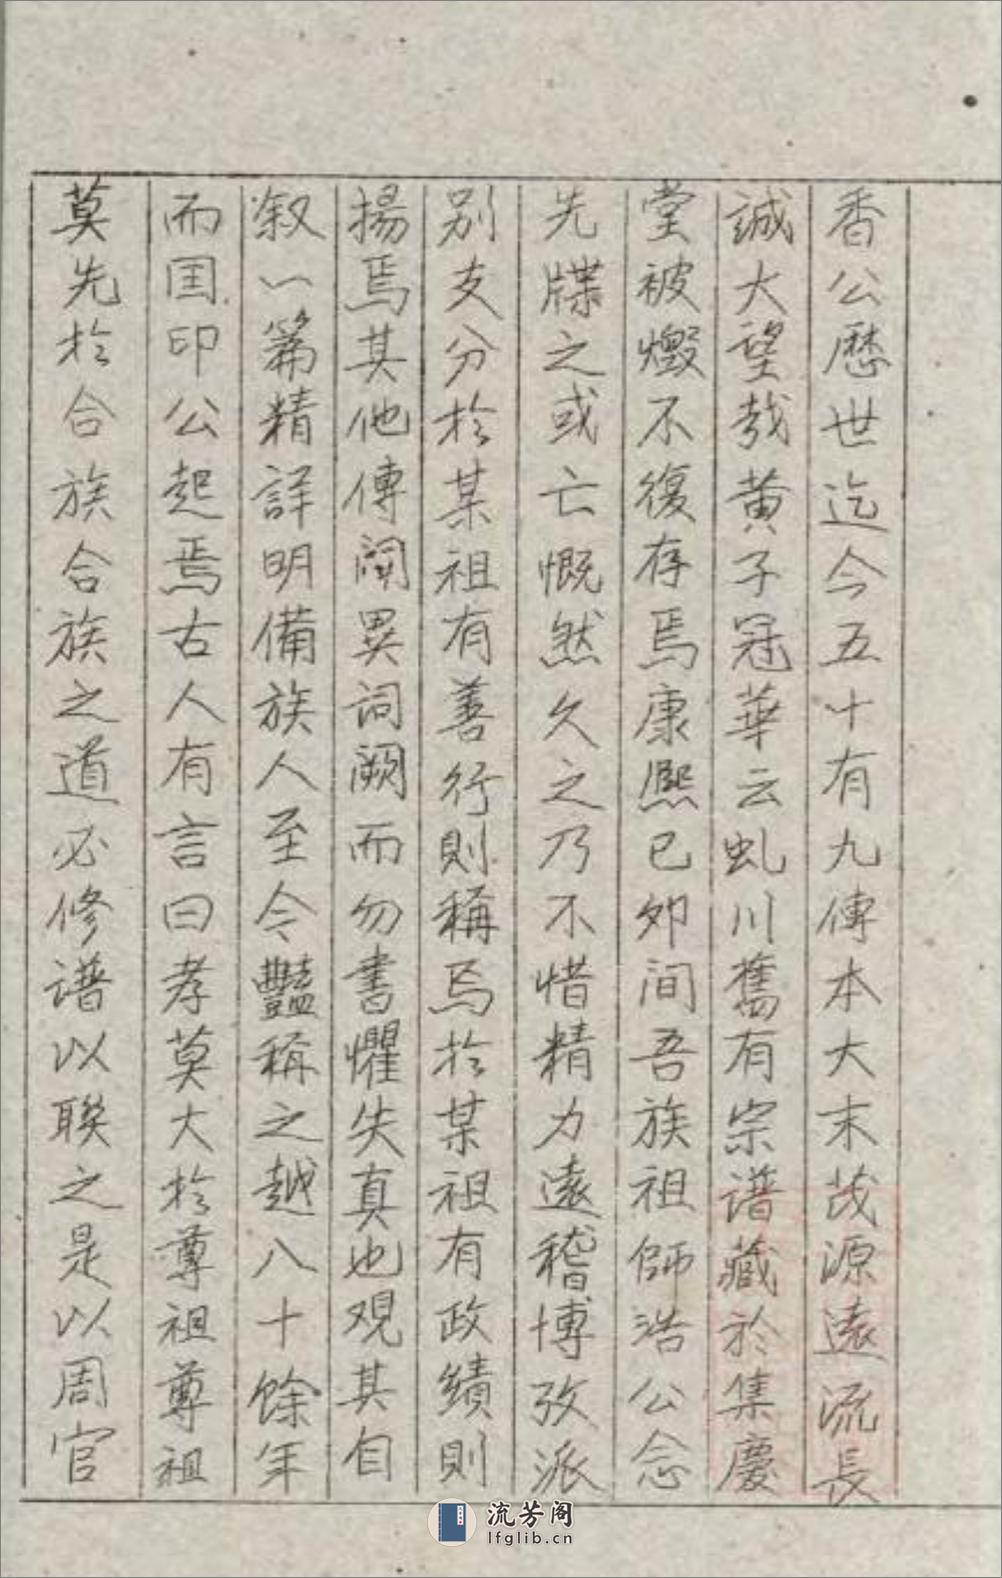 香公歷世迄今五十有九傳本大末茂源遠流長
誠大望哉黄子冠華云虬川舊有宗譜藏於集慶
堂被燬不復存焉康熙已夘间吾族祖師浩公念
先牒之或亡慨然久之乃不惜精力遠稽博攷派
别支分於某祖有善行則稱焉於某祖有政績則
揚焉其他傳闻異词阙而勿書懼失真也观其自
叙一篇精詳明備族人至今豔称之越八十餘年
而国印公起焉古人有言曰孝莫大於尊祖尊祖
莫先於合族合族之道必修谱以聯之是以周官
流芳阁
lfglib.cn